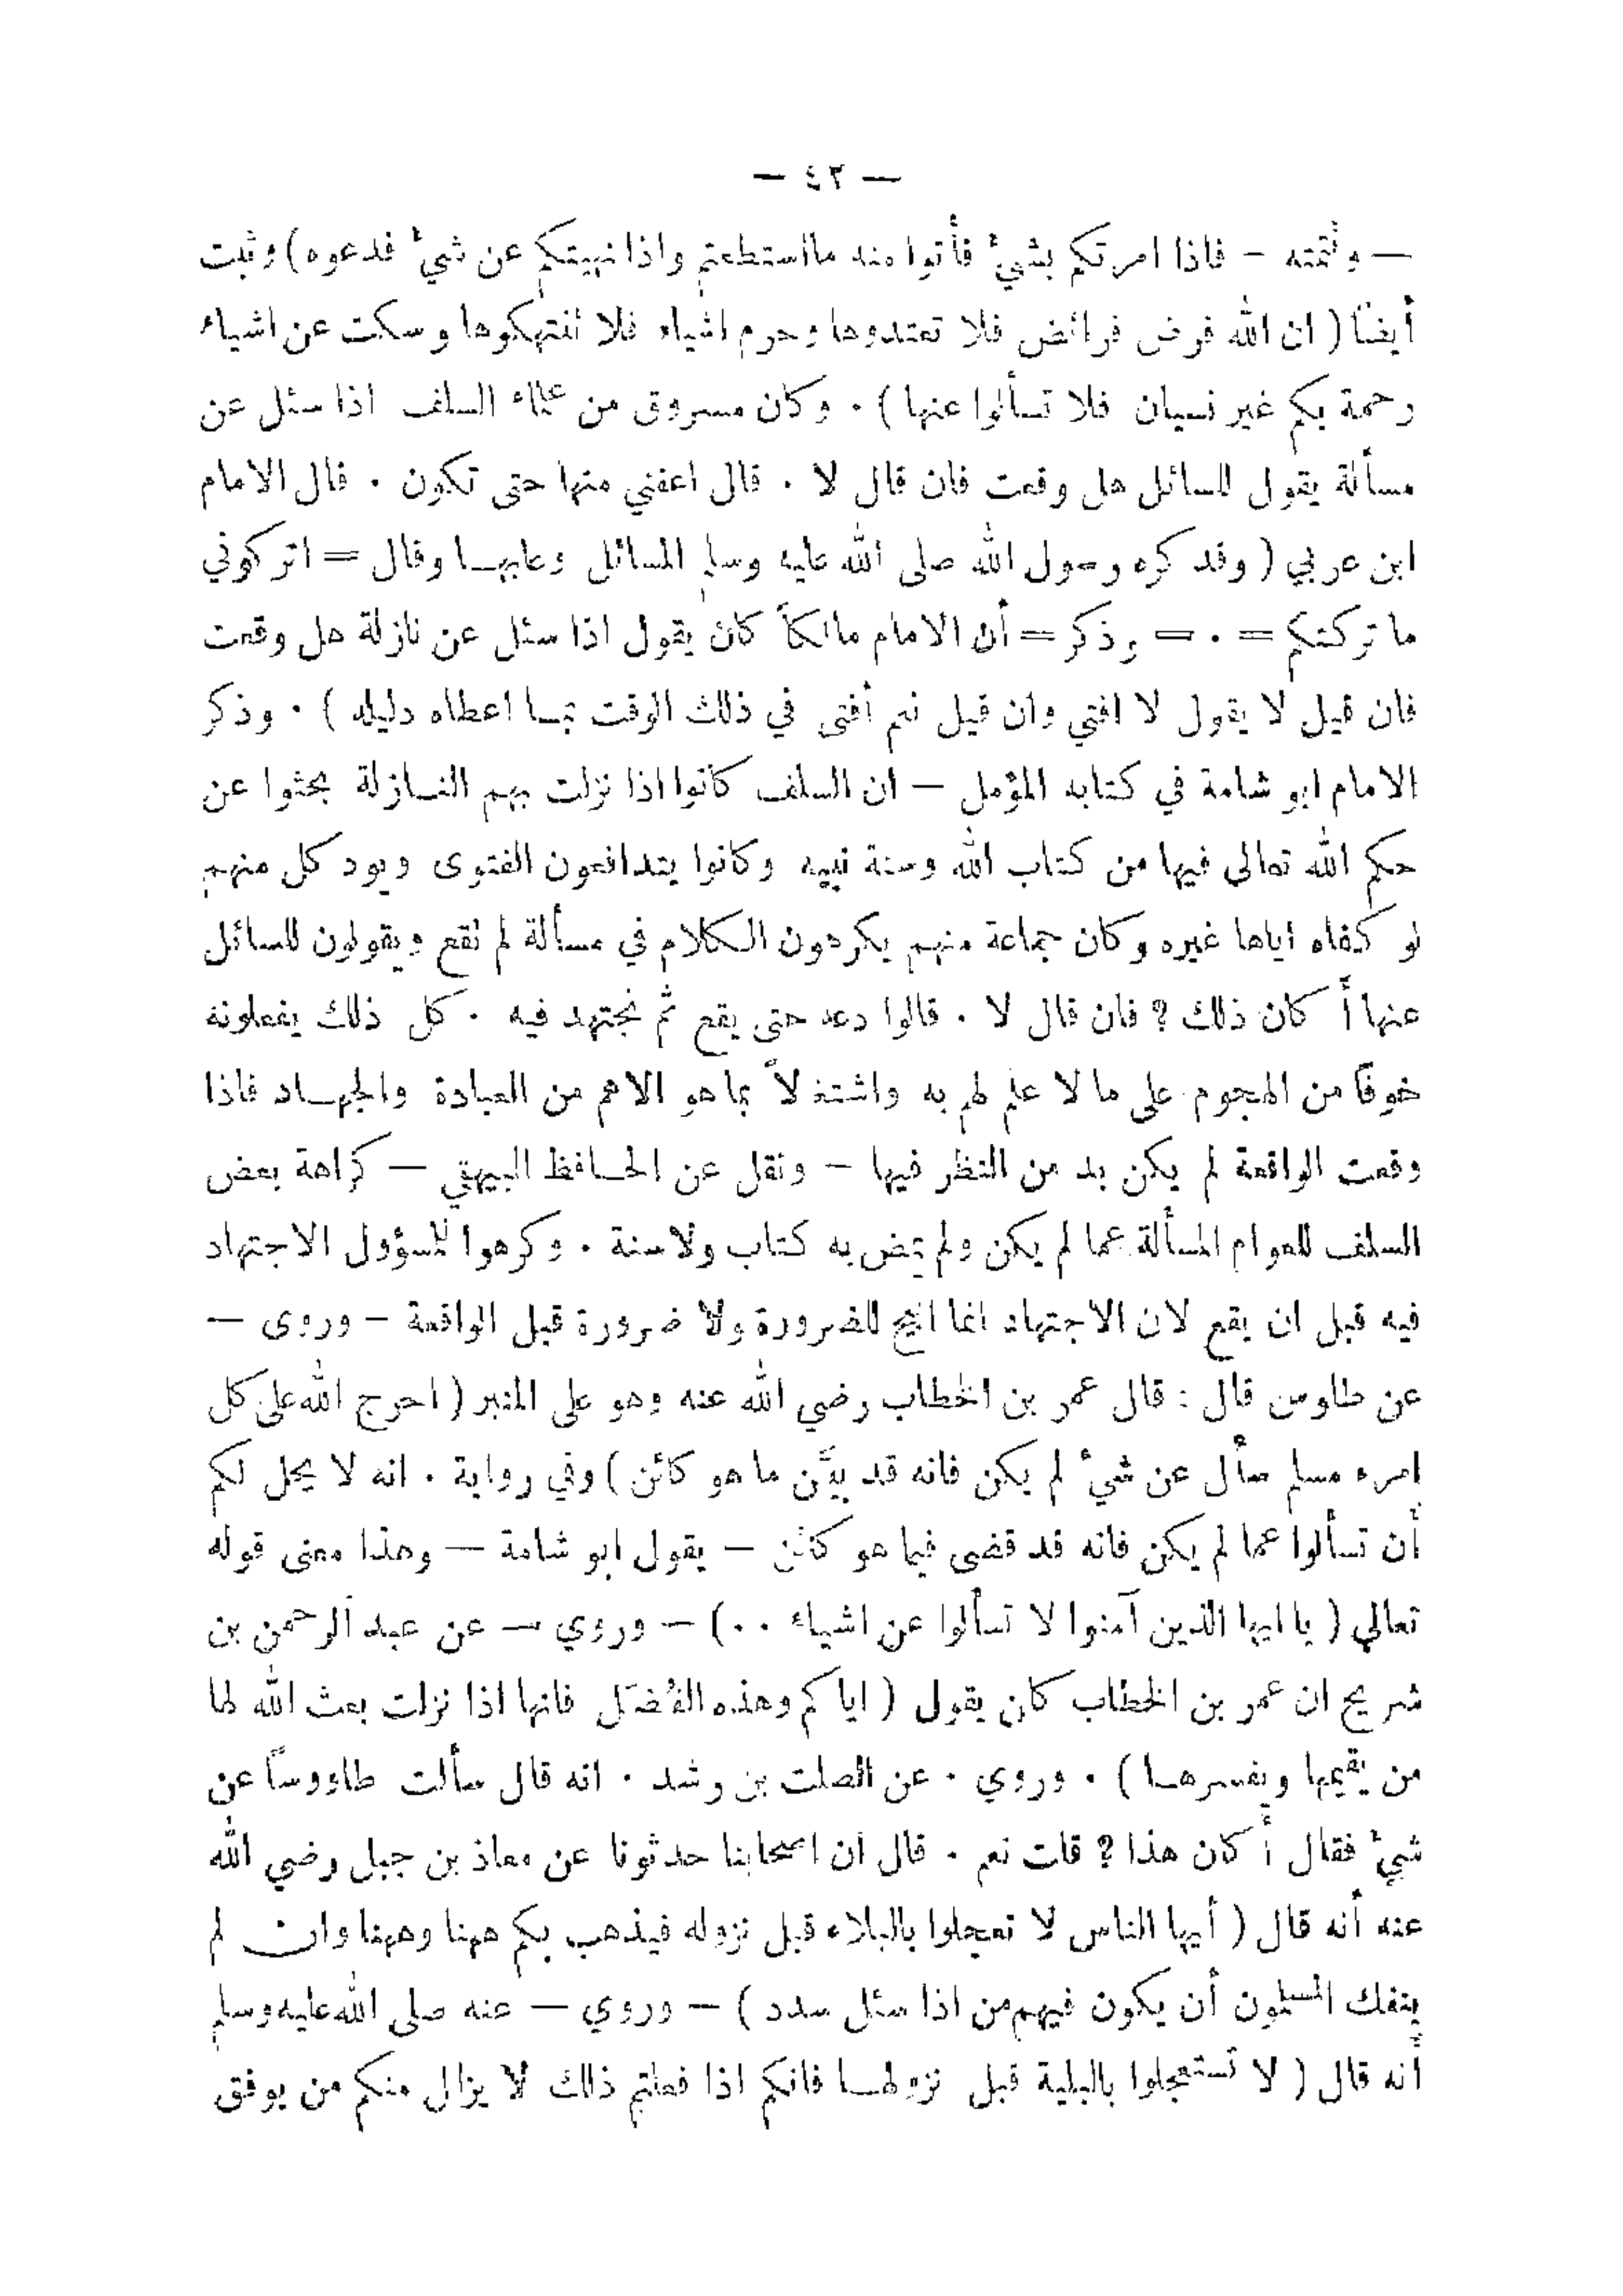 — ٤٢ —
— وتتمته – فاذا امرتكم بشيء فأتوا منه ما استطعتم واذا نهيتكم عن شيء فدعوه ) وثبت
أيضاً ( ان الله فرض فرائض فلا تعتدوها وحرم اشياء فلا تنتهكوها وسكت عن اشياء
رحمة بكم غير نسيان فلا تسألوا عنها ) . وكان مسروق من علماء السلف اذا سئل عن
مسألة يقول للسائل هل وقعت فان قال لا . قال اعفني منها حتى تكون . قال الامام
ابن عربي ( وقد كره رسول الله صلى الله عليه وسلم المسائل وعابهـا وقال = اتركوني
ما تركتكم = . = وذكر = أن الامام مالكاً كان يقول اذا سئل عن نازلة هل وقعت
فان قيل لا يقول لا افتي وان قيل نعم أفتى في ذلك الوقت بمـا اعطاه دليله ) . وذكر
الامام ابو شامة في كتابه المؤمل — ان السلف كانوا اذا نزلت بهم النـازلة بحثوا عن
حكم الله تعالى فيها من كتاب الله وسنة نبيه وكانوا يتدافعون الفتوى ويود كل منهم
لو كفاه اياها غيره وكان جماعة منهم يكرهون الكلام في مسألة لم تقع ويقولون للسائل
عنها أ كان ذلك ? فان قال لا . قالوا دعه حتى يقع ثم نجتهد فيه . كل ذلك يفعلونه
خوفاً من الهجوم على ما لا علم لهم به واشتغالاً بما هو الاهم من العبادة والجهـاد فاذا
وقعت الواقعة لم يكن بد من النظر فيها – ونقل عن الحـافظ البيهقي — كراهة بعض
السلف للعوام المسألة عما لم يكن ولم يمض به كتاب ولا سنة . وكرهوا للمسؤول الاجتهاد
فيه قبل ان يقع لان الاجتهاد انما ابيح للضرورة ولا ضرورة قبل الواقعة – وروى —
عن طاوس قال : قال عمر بن الخطاب رضي الله عنه وهو على المنبر ( احرج الله على كل
امرء مسلم سأل عن شيء لم يكن فانه قد بيَّن ما هو كائن ) وفي رواية . انه لا يحل لكم
أن تسألوا عما لم يكن فانه قد قضى فيما هو كائن — يقول ابو شامة — وهذا معنى قوله
تعالى ( يا ايها الذين آمنوا لا تسألوا عن اشياء . . ) – وروي – عن عبد الرحمن بن
شريح ان عمر بن الخطاب كان يقول ( اياكم وهذه العُضَل فانها اذا نزلت بعث الله لها
من يقيمها ويفسرهـا ) . وروي . عن الصلت بن رشد . انه قال سألت طاووساً عن
شيء فقال أ كان هذا ? قلت نعم . قال ان اصحابنا حدثونا عن معاذ بن جبل رضي الله
عنه أنه قال ( أيها الناس لا تعجلوا بالبلاء قبل نزوله فيذهب بكم ههنا وههنا وان لم
ينفك المسلمون أن يكون فيهم من اذا سئل سدد ) – وروي – عنه صلى الله عليه وسلم
أنه قال ( لا تستعجلوا بالبلية قبل نزولهـا فانكم اذا فعلتم ذلك لا يزال منكم من يوفق